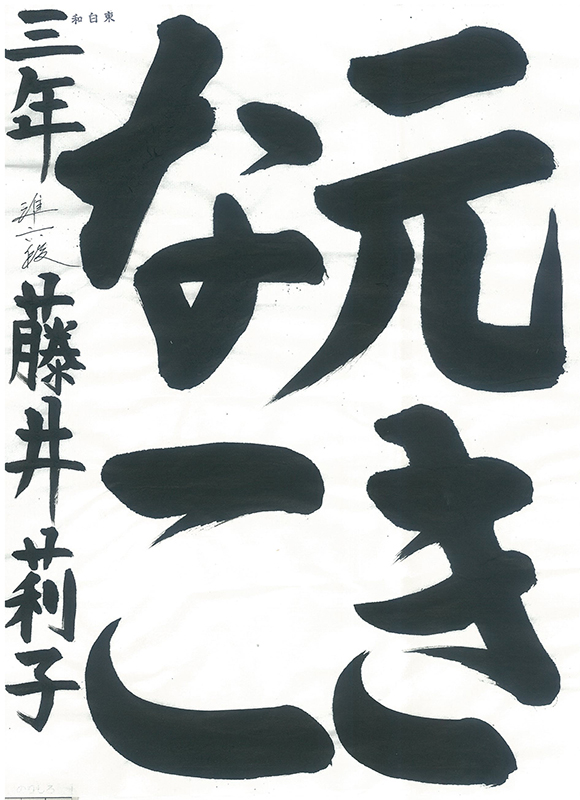 元き
なこ
東白和
三年 準六段 藤井莉子